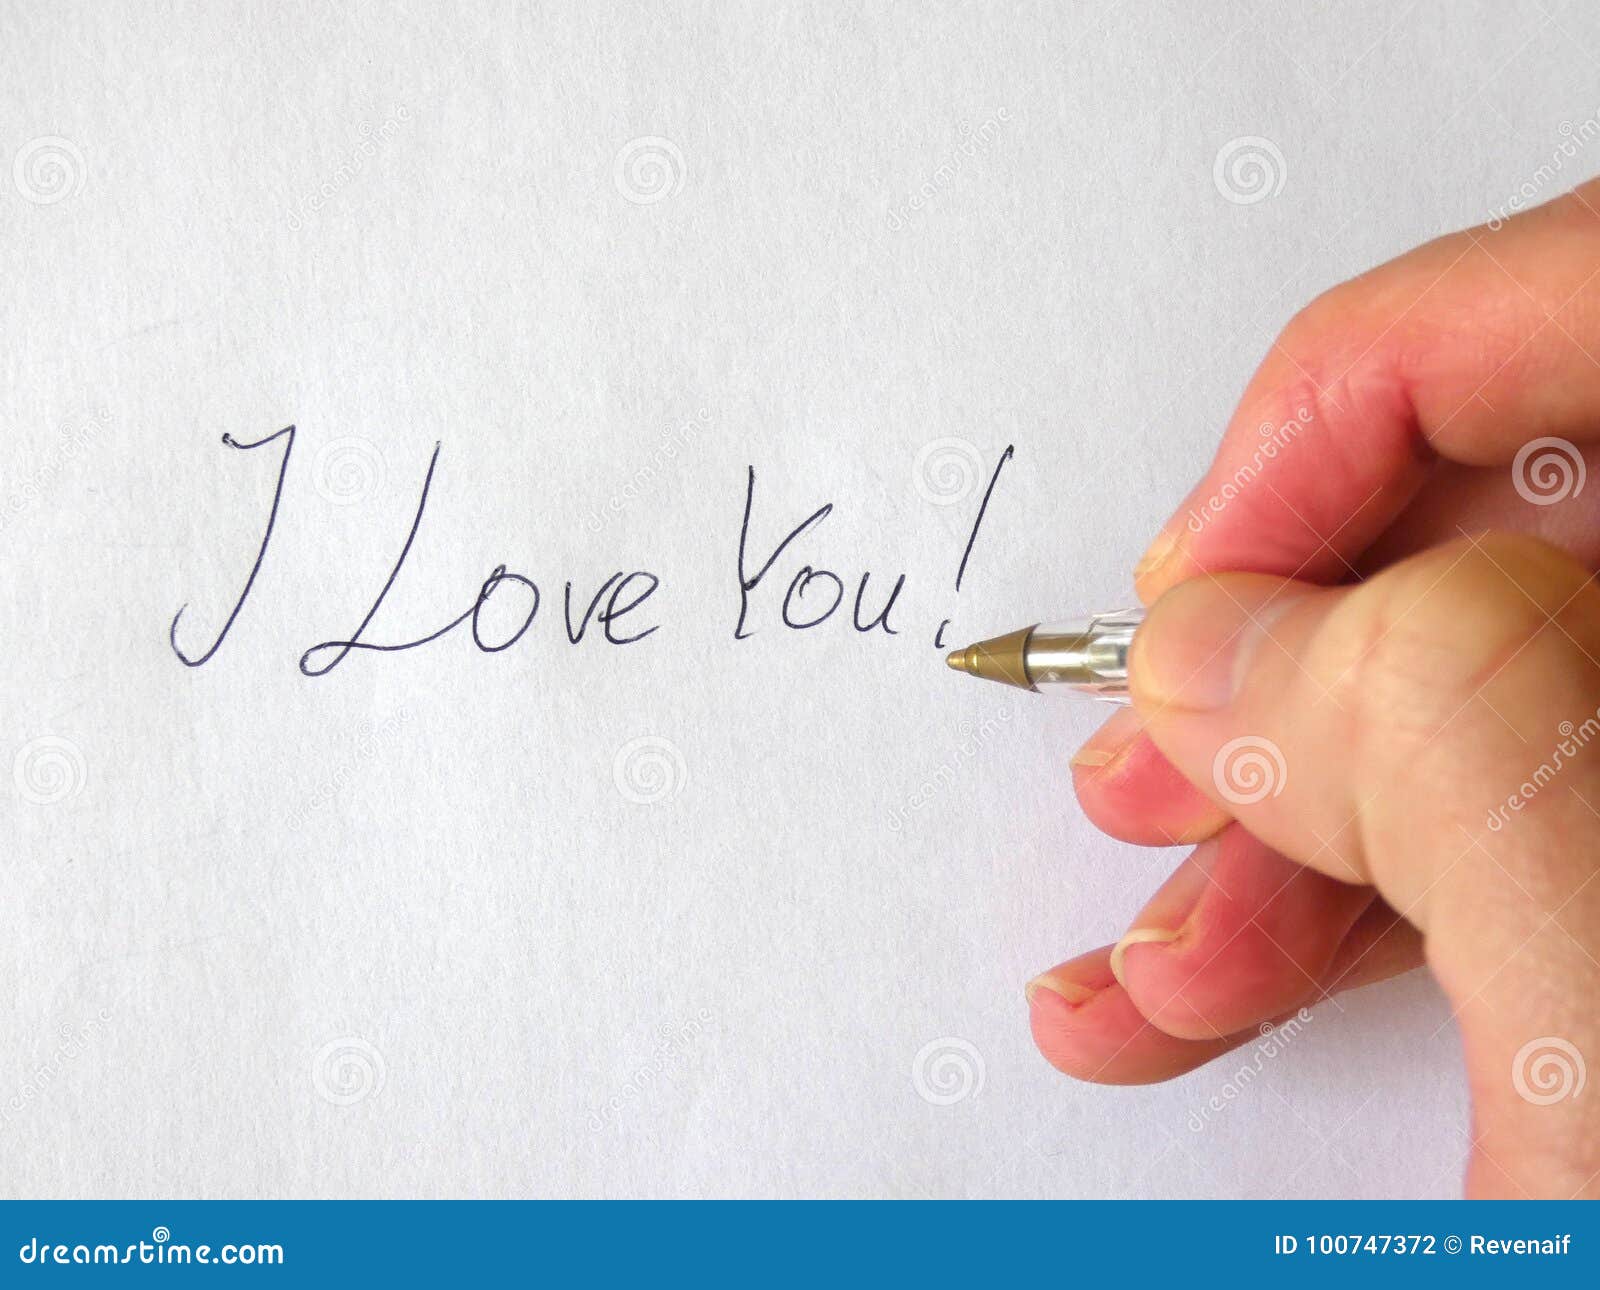 I Love You!
dreamstime.com
ID 100747372 © Revenaif